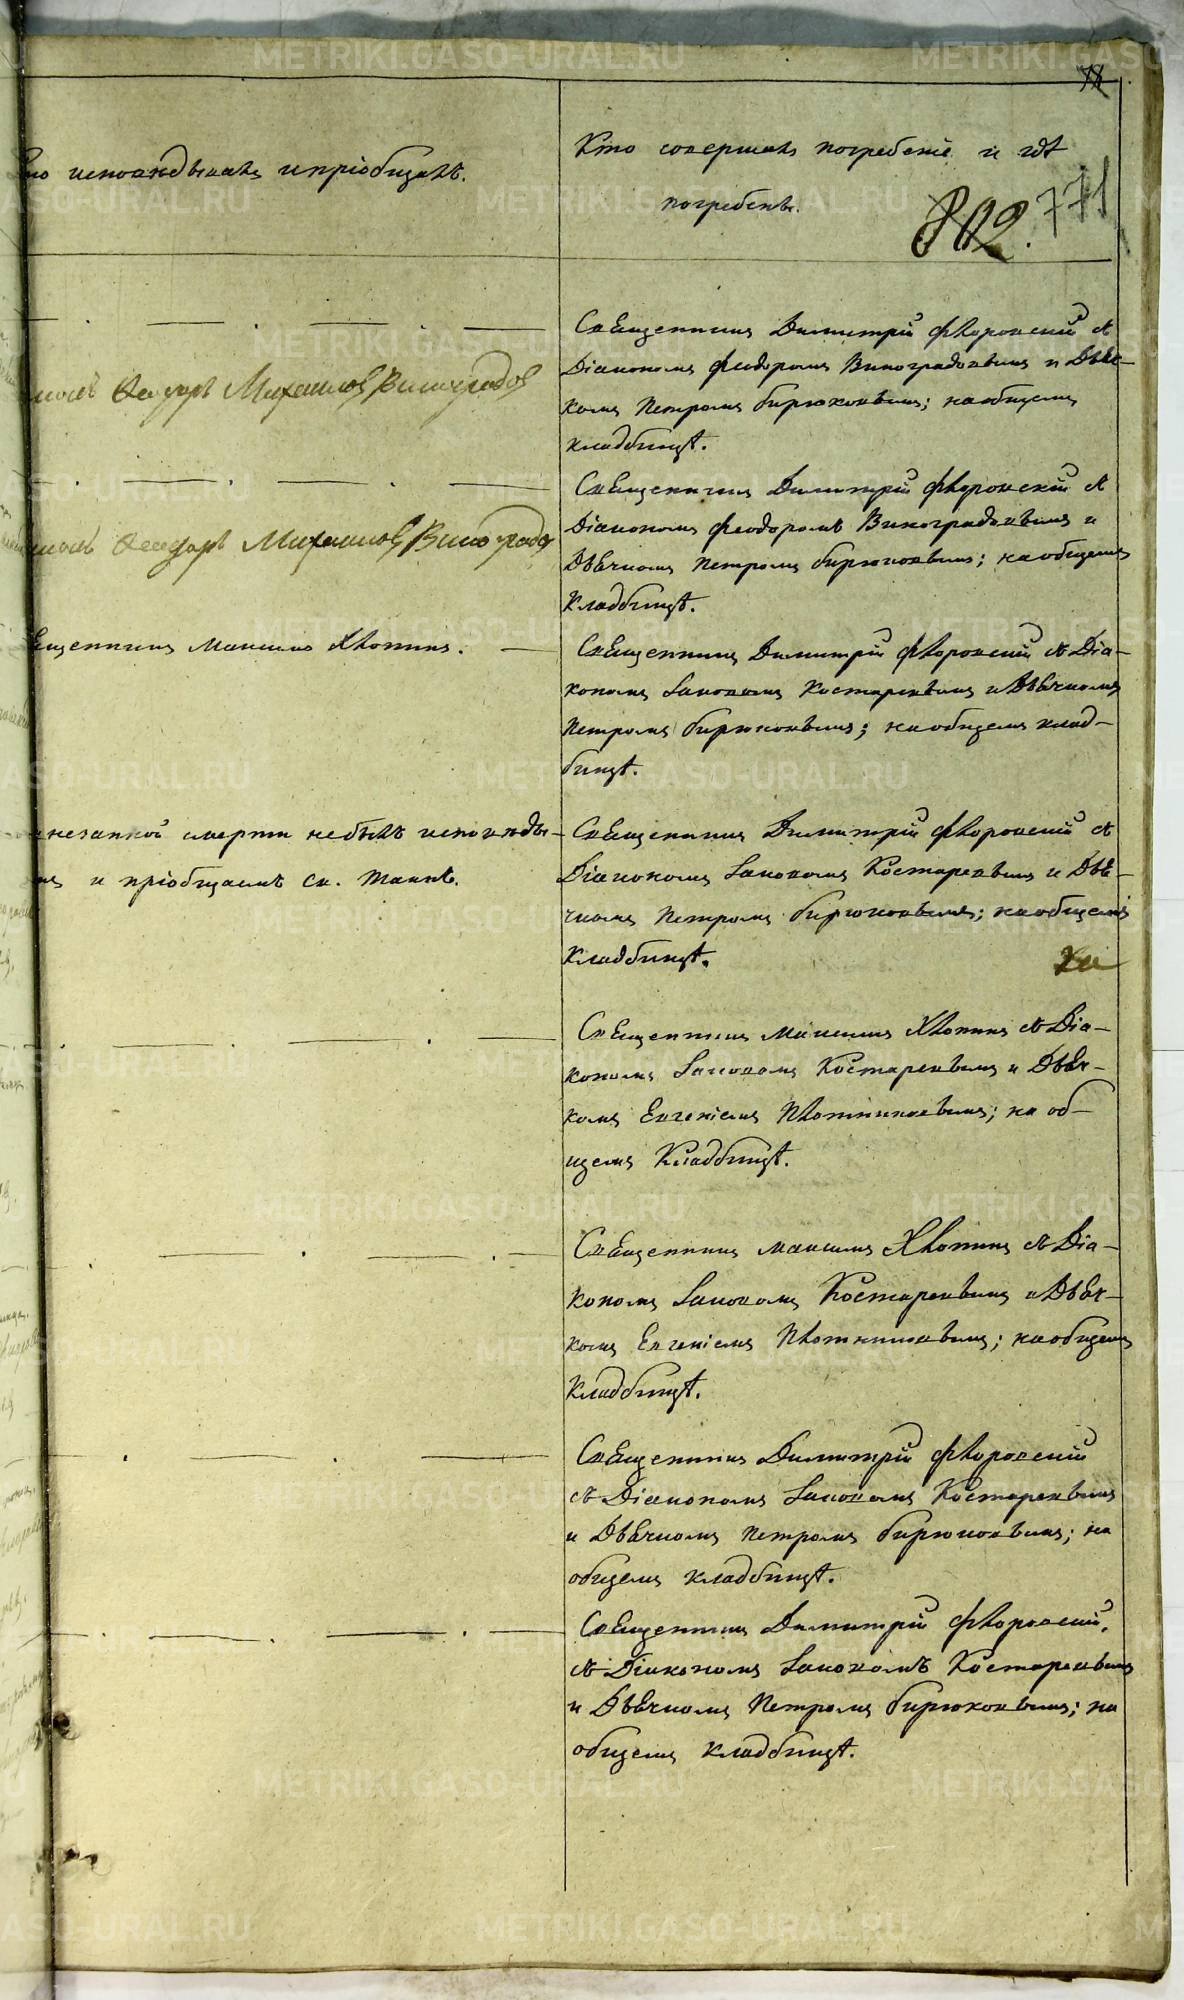 исповѣдывалъ и пріобщалъ.
Кто совершалъ погребеніе и гдѣ
погребенъ.
802. 771
Священникъ Димитрій Флоровскій съ
Діакономъ Феодоромъ Виноградовымъ и Дьяч-
комъ Петромъ Бирюковымъ; на общемъ
кладбищѣ.
Ѳеодоръ Михайловъ Виноградовъ
Священникъ Димитрій Флоровскій съ
Діакономъ Феодоромъ Виноградовымъ и
Дьячкомъ Петромъ Бирюковымъ; на общемъ
Кладбищѣ.
Ѳеодоръ Михайловъ Виноградовъ
ященникъ Максимъ Хлопинъ.
Священникъ Димитрій Флоровскій съ Діа-
кономъ Іаковомъ Костаревымъ и Дьячкомъ
Петромъ Бирюковымъ; на общемъ клад-
бищѣ.
внезапной смерти не былъ исповѣды-
и пріобщаемъ Св. Таинъ.
Священникъ Димитрій Флоровскій съ
Діакономъ Іаковомъ Костаревымъ и Дья-
чкомъ Петромъ Бирюковымъ; на общемъ
Кладбищѣ.
Священникъ Максимъ Хлопинъ съ Діа-
кономъ Іаковомъ Костаревымъ и Дьяч-
комъ Евгеніемъ Плотниковымъ; на об-
щемъ Кладбищѣ.
Священникъ Максимъ Хлопинъ съ Діа-
кономъ Іаковомъ Костаревымъ и Дьяч-
комъ Евгеніемъ Плотниковымъ; на общемъ
Кладбищѣ.
Священникъ Димитрій Флоровскій
съ Діакономъ Іаковомъ Костаревымъ
и Дьячкомъ Петромъ Бирюковымъ; на
общемъ кладбищѣ.
Священникъ Димитрій Флоровскій,
съ Діакономъ Іаковомъ Костаревымъ
и Дьячкомъ Петромъ Бирюковымъ; на
общемъ кладбищѣ.
METRIKI.GASO-URAL.RU